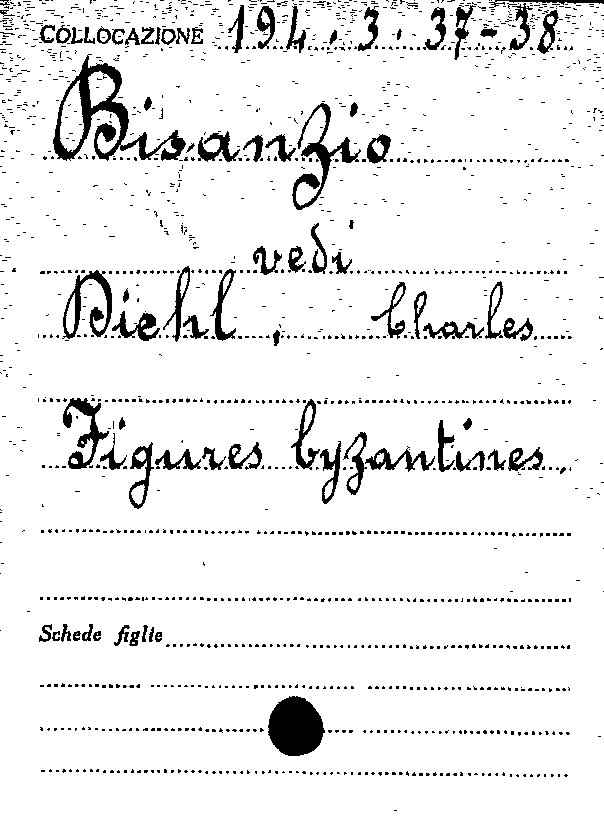 COLLOCAZIONE 194.3.37-38
Bisanzio
vedi
Diehl, Charles
Figures byzantines.
Schede figlie